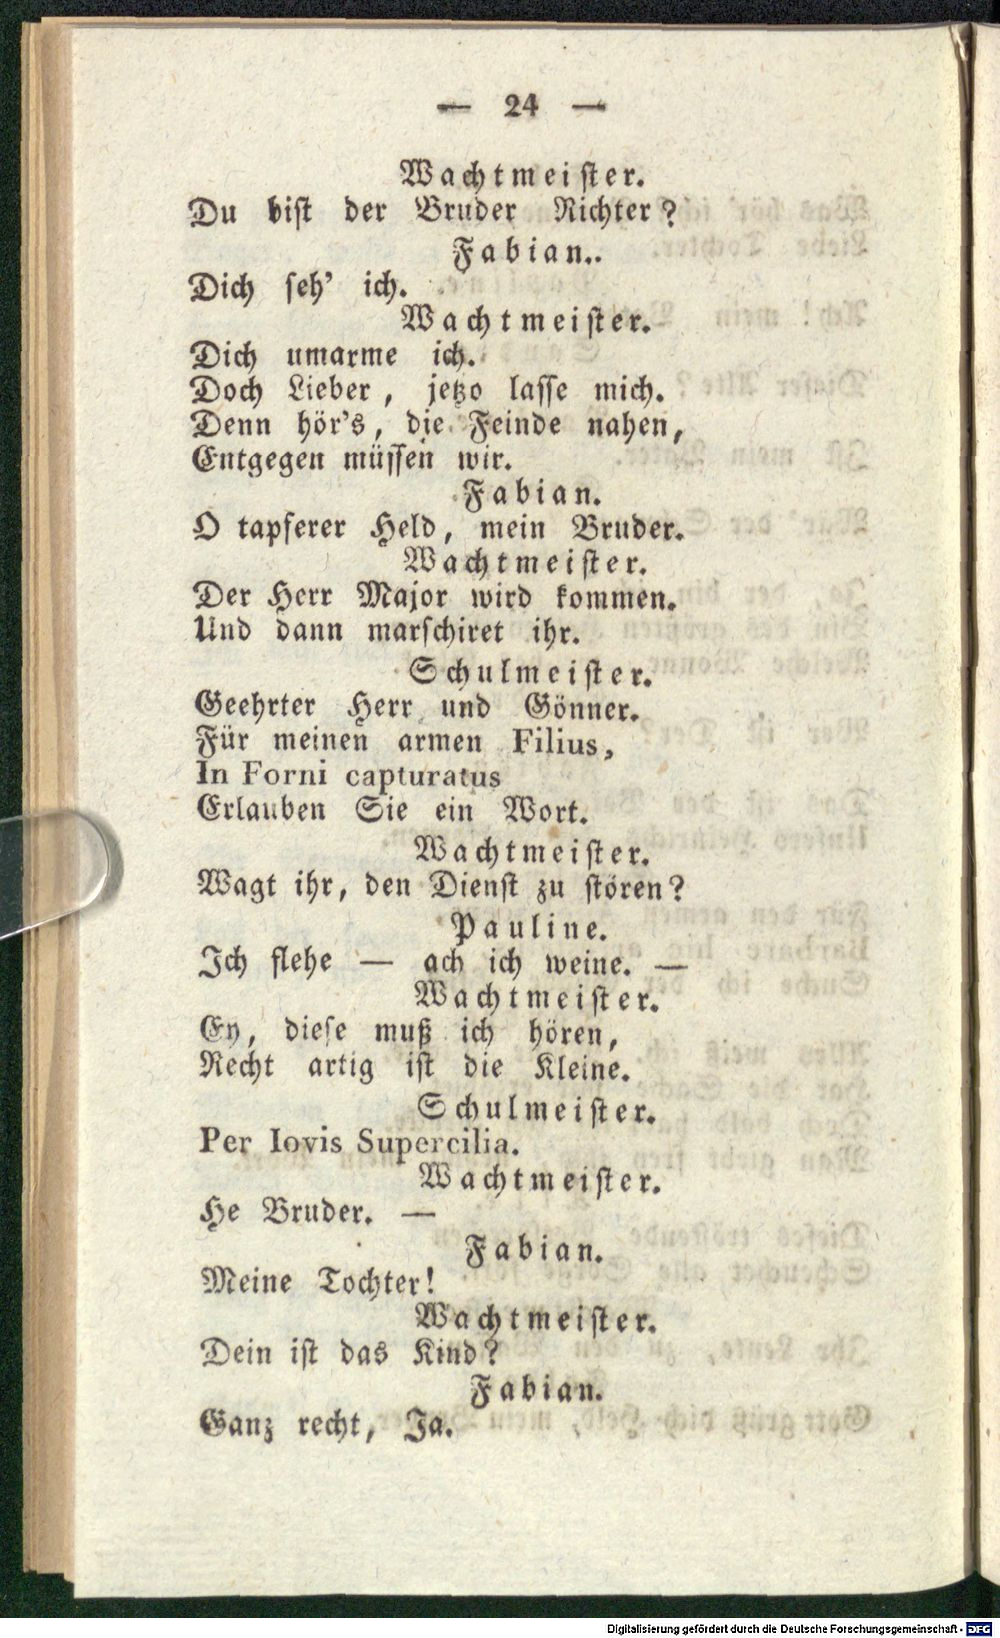 — 24 —
Wachtmeister.
Du bist der Bruder Richter?
Fabian..
Dich seh' ich.
Wachtmeister.
Dich umarme ich.
Doch Lieber, jetzo lasse mich.
Denn hör's, die Feinde nahen,
Entgegen müssen wir.
Fabian.
O tapferer Held, mein Bruder.
Wachtmeister.
Der Herr Major wird kommen.
Und dann marschiret ihr.
Schulmeister.
Geehrter Herr und Gönner.
Für meinen armen Filius,
In Forni capturatus
Erlauben Sie ein Wort.
Wachtmeister.
Wagt ihr, den Dienst zu stören?
Pauline.
Ich flehe — ach ich weine. —
Wachtmeister.
Ey, diese muß ich hören,
Recht artig ist die Kleine.
Schulmeister.
Per Iovis Supercilia.
Wachtmeister.
He Bruder. —
Fabian.
Meine Tochter!
Wachtmeister.
Dein ist das Kind?
Fabian.
Ganz recht, Ja.
Digitalisierung gefördert durch die Deutsche Forschungsgemeinschaft - DFG